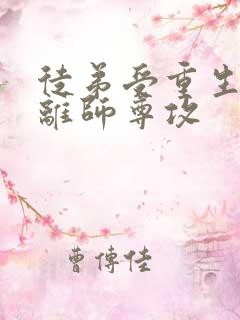 徒弟受重生
離師尊攻
曹傳佳